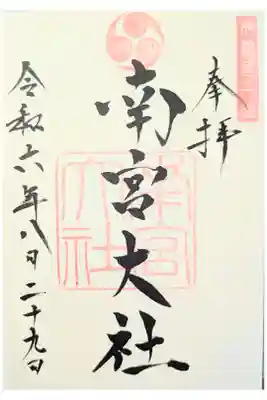 奉拝
南宮大社
令和六年八月二十九日